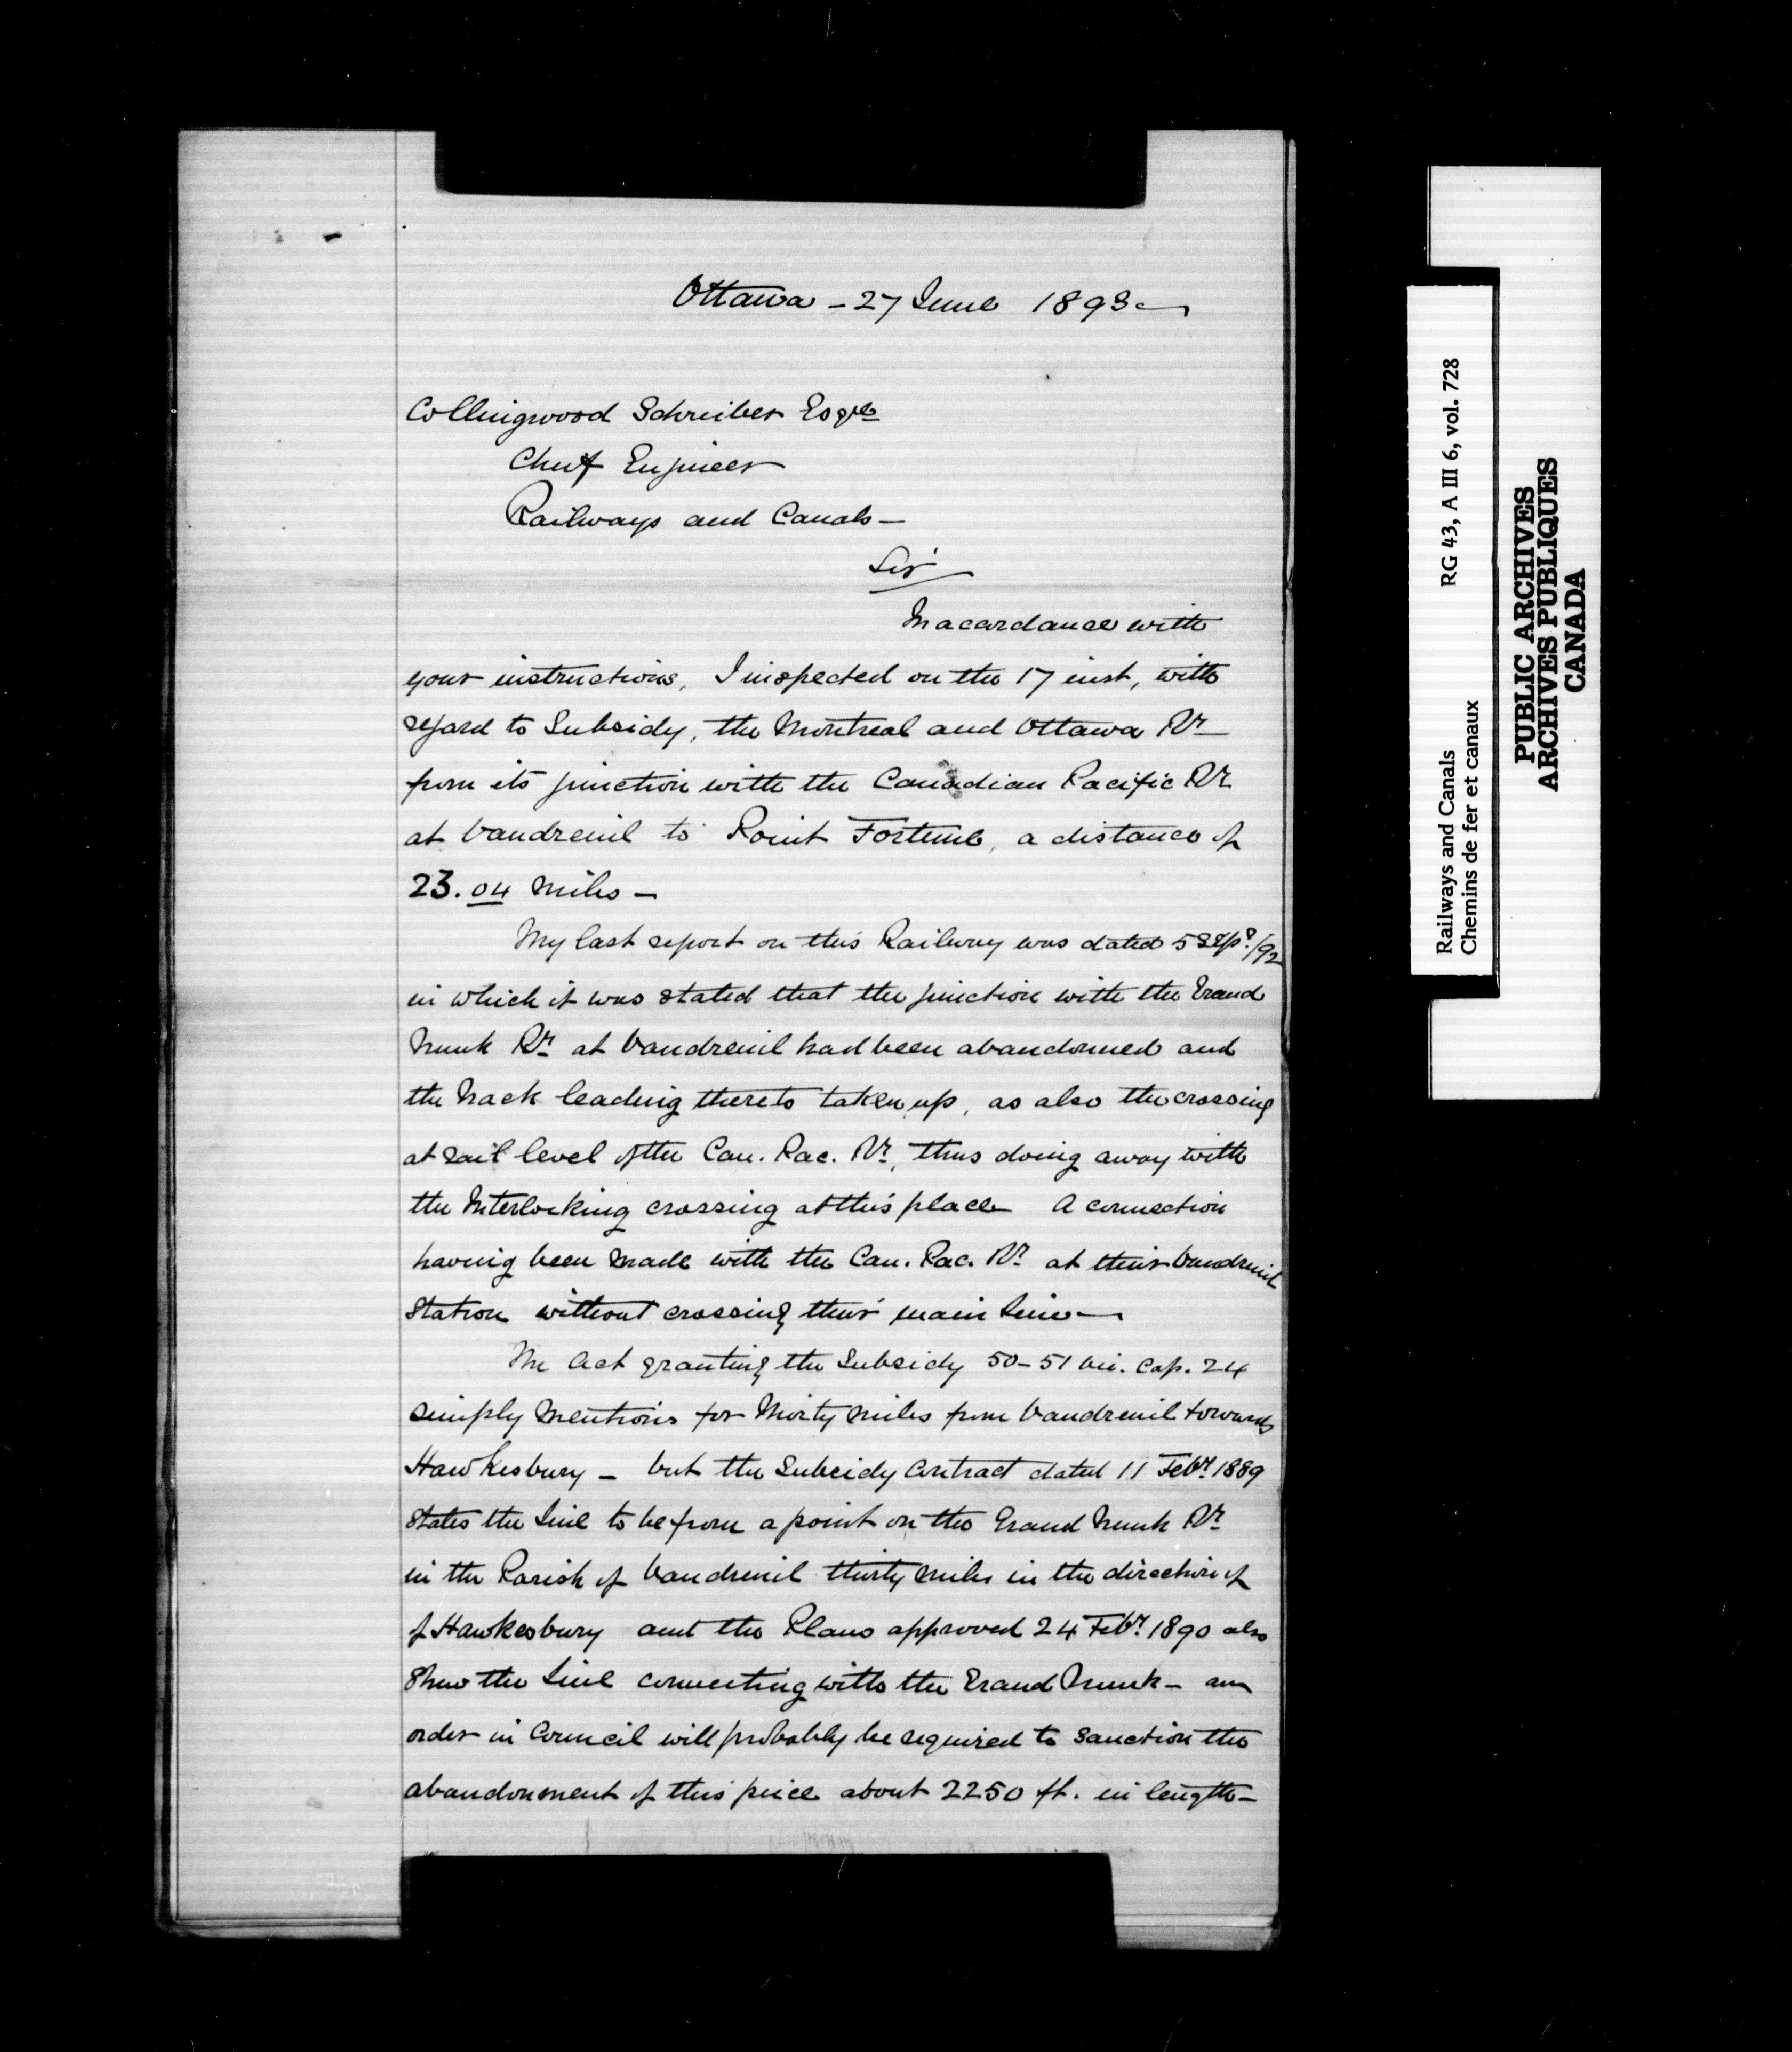 Ottawa - 27 June 1893 -
Collingwood Schreiber Esqre
Chief Engineer
Railways and Canals -
Sir
In accordance with
your instructions, I inspected on the 17 inst, with
regard to Subsidy, the Montreal and Ottawa Ry
from its junction with the Canadian Pacific Ry
at Vaudreuil to Point Fortune, a distance of
23.04 Miles -
My last report on this Railway was dated 5 Sept/92
in which it was stated that the junction with the Grand
Trunk Ry at Vaudreuil had been abandoned and
the track leading thereto taken up, as also the crossing
at rail level of the Can. Pac. Ry, thus doing away with
the Interlocking crossing at this place A connection
having been made with the Can. Pac. Ry at their Vaudreuil
Station without crossing their main line -
The Act granting the Subsidy 50-51 Vic. Cap. 24
simply mentions for Thirty miles from Vaudreuil towards
Hawkesbury - but the Subsidy Contract dated 11 Feby 1889
States the line to be from a point on the Grand Trunk Ry
in the Parish of Vaudreuil thirty miles in the direction of
of Hawkesbury and the Plans approved 24 Feby 1890 also
Shew the line connecting with the Grand Trunk - an
order in Council will probably be required to Sanction the
abandonment of this piece about 2250 ft. in length -
Railways and Canals RG 43, A III 6, vol. 728
Chemins de fer et canaux
PUBLIC ARCHIVES
ARCHIVES PUBLIQUES
CANADA